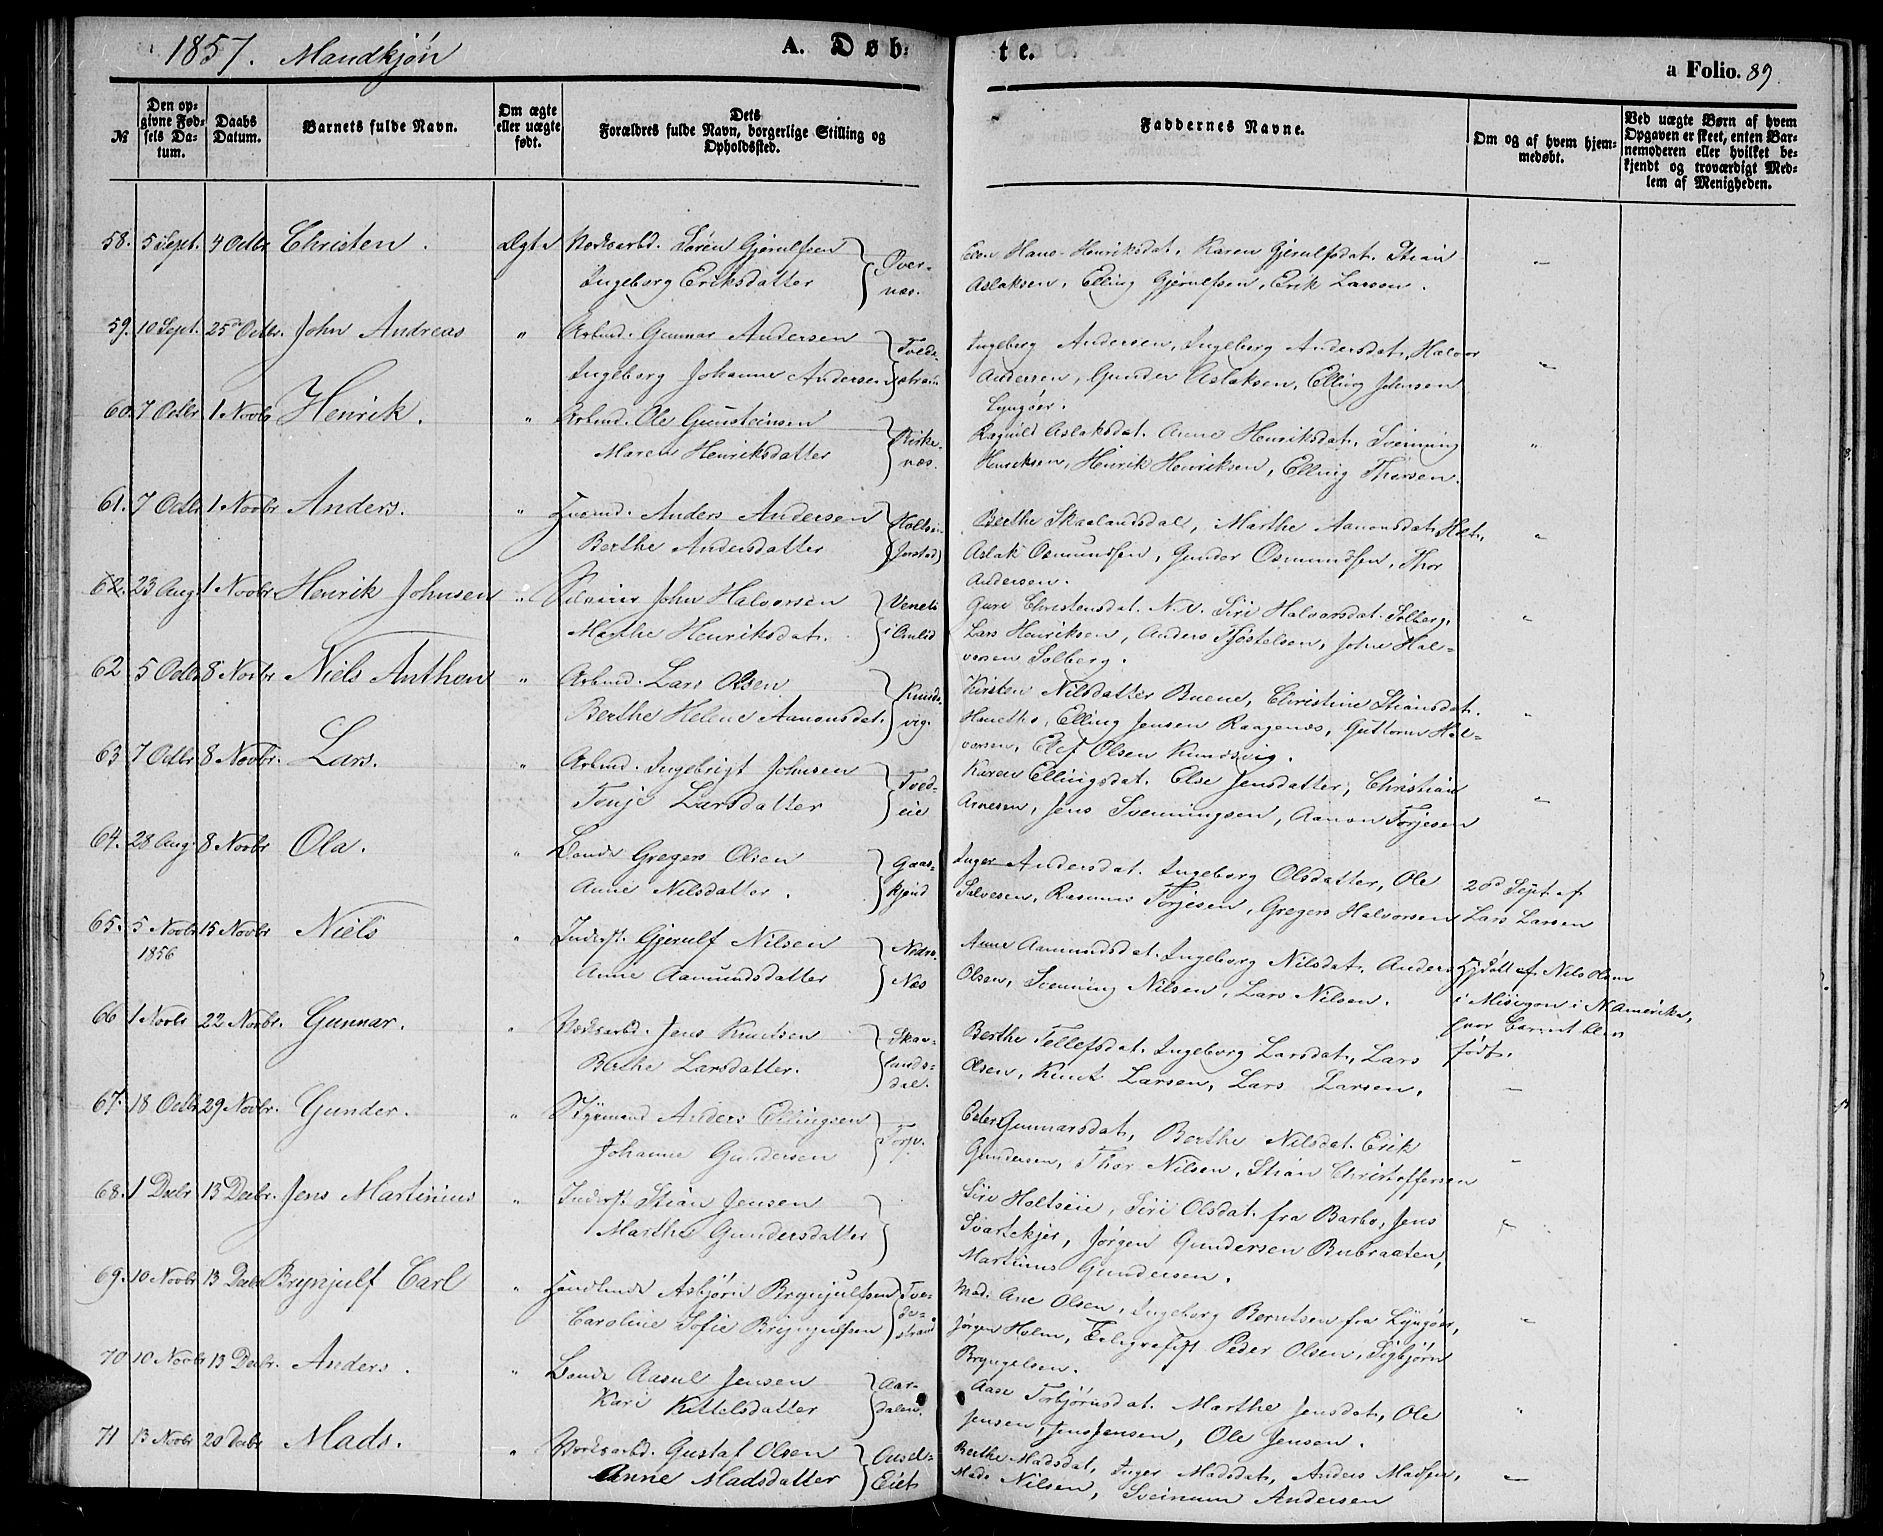 1857. Mandkjøn A. Døb- te. a Folio. 89.
№ Den op- givne Fød- sels Da- tum. Daabs Datum. Barnets fulde Navn. Om ægte eller uægte født. Dets Forældres fulde Navn, borgerlige Stilling og Opholdssted. Faddernes Navne. Om og af hvem hjem- medøbt. Ved uægte Børn af hvem Opgaven er skeet, enten Bar- nemoderen eller hvilket be- kjendt og troværdigt Med- lem af Menigheden.
58. 5 Sept. 4 Octbr Christen. Ægte Værksarbd. Søren Gjerulfsen Over-
Ingeborg Eriksdatter næs.
Hans Henriksdat. Karen Gjerulfsdat. Stian
Aslaksen, Elling Gjerulfsen, Erik Larsen. —
59. 10 Sept. 25de Octbr. John Andreas " Arbmd. Gunnar Andersen Tveds-
Ingeborg Johanne Andersen strand
Ingeborg Andersen, Ingeborg Andersdat, Halvor
Andersen, Gunder Aslaksen, Elling Johnsen
Lyngøer. "
60. 7 Octbr 1 Novbr Henrik. " Arbmd. Ole Gunsteinsen Kirke-
Maren Henriksdatter næs.
Ragnild Aslaksdat. Anne Henriksdat. Svenning
Henriksen, Henrik Henriksen, Elling Thorsen. "
61. 7 Octbr 1 Novbr Anders. " Anders Andersen Holts-
Berthe Andersdatter
Berthe Skaalandsdal, Marthe Aanonsdat, Holt,
Aslak Osmundsen, Gunder Osmundsen, Thor
Andersen. "
62. 23 Aug. 1 Novbr. Henrik Johnsen " John Halvorsen
Marthe Henriksdat.
Guri Christensdat. N.N. Siri Halvorsdat. Solberg,
Lars Henriksen, Anders Kjøstelsen, John Hal-
vorsen Solberg. "
62 5 Octbr 8 Novbr. Niels Anthon " Arbmd. Lars Olsen Knuds-
Berthe Helene Aanonsdat. vig.
Kirsten Nilsdatter Buene, Christine Stiansdat.
Elling Jensen Raagenæs, Guttorm Hal-
vorsen, Elef Olsen Kundsvig. "
63 7 Octbr 8 Novbr. Lars. " Arbmd. Ingebrigt Johnsen Tved-
Tonje Larsdatter eie
Karen Ellingsdat. Else Jensdatter, Christian
Arnesen, Jens Svenningsen, Aanon Torjesen —
64. 28 Aug. 8 Novbr Ola. " Bonde Gregers Olsen Gaas-
Anne Nilsdatter. kjend
Inger Andersdat. Ingeborg Olsdatter, Ole
Salvesen, Rasmus Torjesen, Gregers Halvorsen
20de Sept. af
Lars Larsen
65. 5 Novbr 1856 15 Novbr Niels " Inderst. Gjerulf Nilsen Nedre
Anne Aamundsdatter Næs
Anne Aamundsdat. Ingeborg Nilsdat, Anders
Olsen, Svenning Nilsen, Lars Nilsen.
Hjdøbt af Nils Olsen
i Misigon i N.Amerika,
hvor Barnet blev
født.
66 1 Novbr 22 Novbr. Gunnar. " Værksarbd. Jens Knudsen Skaa-
Berthe Larsdatter. lands-
dal.
Berthe Tellefsdat. Ingeborg Larsdat, Lars
Olsen, Knut Larsen, Lars Larsen. —
67. 18 Octbr 29 Novbr. Gunder. " Styrmand Anders Ellingsen Torp.
Johanne Gundersen
Gunnarsdat, Berthe Nilsdat. Erik
Gundersen, Thor Nilsen, Stian Christoffersen —
68. 1 Decbr 13 Decbr. Jens Martinius " Inderst. Stian Jensen
Marthe Gundersdatter
Siri Holtseie, Siri Olsdat. fra Barbo, Jens
Svartekjer, Jørgen Gundersen Bubraaten,
Martinus Gundersen.
69. 10 Novbr 13 Decbr Brynjulf Carl " Handlende Asbjørn Brynjulfsen Tve-
Caroline Sofie Brynjulfsen de-
strand
Mad. Ane Olsen, Ingeborg Berntsen fra Lyngøer,
Jørgen Holm, Telegrafist Peder Olsen, Sigbjørn
Bryngelsen. "
70 10 Novbr 13 Decbr. Anders. " Bonde Aasul Jensen Aar-
Kari Kittelsdatter dalen.
Aase Torbjørnsdat. Marthe Jensdat, Ole
Jensen, Jens Jensen, Ole Jensen. "
71 13 Novbr 20 Decbr Mads. " Værksarbd. Gustaf Olsen
Anne Madsdatter Eiet
Berthe Madsdat, Inger Madsdat, Anders Madsen,
Mads Nilsen, Sveinum Andersen —